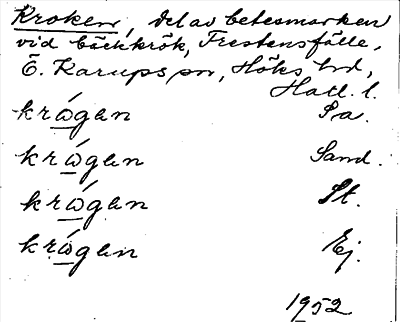 Kroken, del av betesmarken
vid bäckkrök, Frestensfälle,
Ö. Karups sn, Höks hd,
Hall. l.
krώgen Pa.
krώgen Sand.
krώgen St.
krώgen Ej.
1952